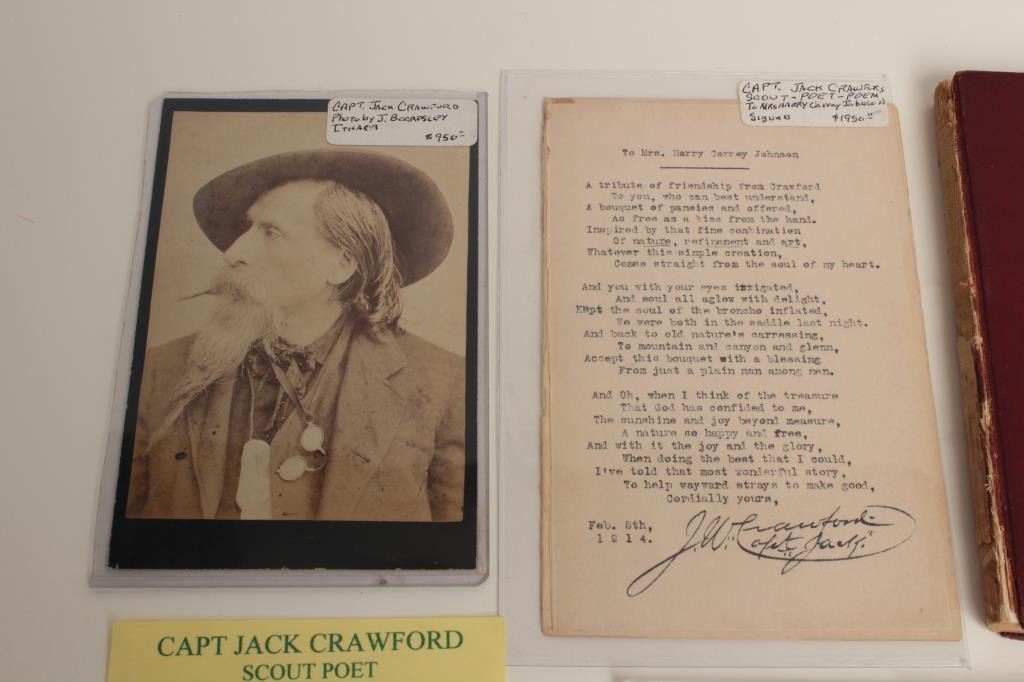 CAPT. JACK CRAWFORD
PHOTO by J. BEARDSLEY
ITHACA
$950
CAPT. JACK CRAWFORD
SCOUT - POET - POEM
To MRS HARRY Correy Johnson
SIGNED $1950
To Mrs. Harry Correy Johnson
A tribute of friendship from Crawford
To you, who can best understand,
A bouquet of pansies and offered,
As free as a kiss from the hand.
Inspired by that fine combination
Of nature, refinement and art,
Whatever this simple creation,
Comes straight from the soul of my heart.
And you with your eyes irrigated,
And soul all aglow with delight,
Kept the soul of the broncho inflated,
We were both in the saddle last night.
And back to old nature's carressing,
To mountain and canyon and glenn,
Accept this bouquet with a blessing
From just a plain man among men.
And Oh, when I think of the treasure
That God has confided to me,
The sunshine and joy beyond measure,
A nature so happy and free,
And with it the joy and the glory,
When doing the best that I could,
I've told that most wonderful story,
To help wayward strays to make good,
Cordially yours,
Feb. 5th,
1914.
J.W. Crawford
"Capt. Jack."
CAPT JACK CRAWFORD
SCOUT POET